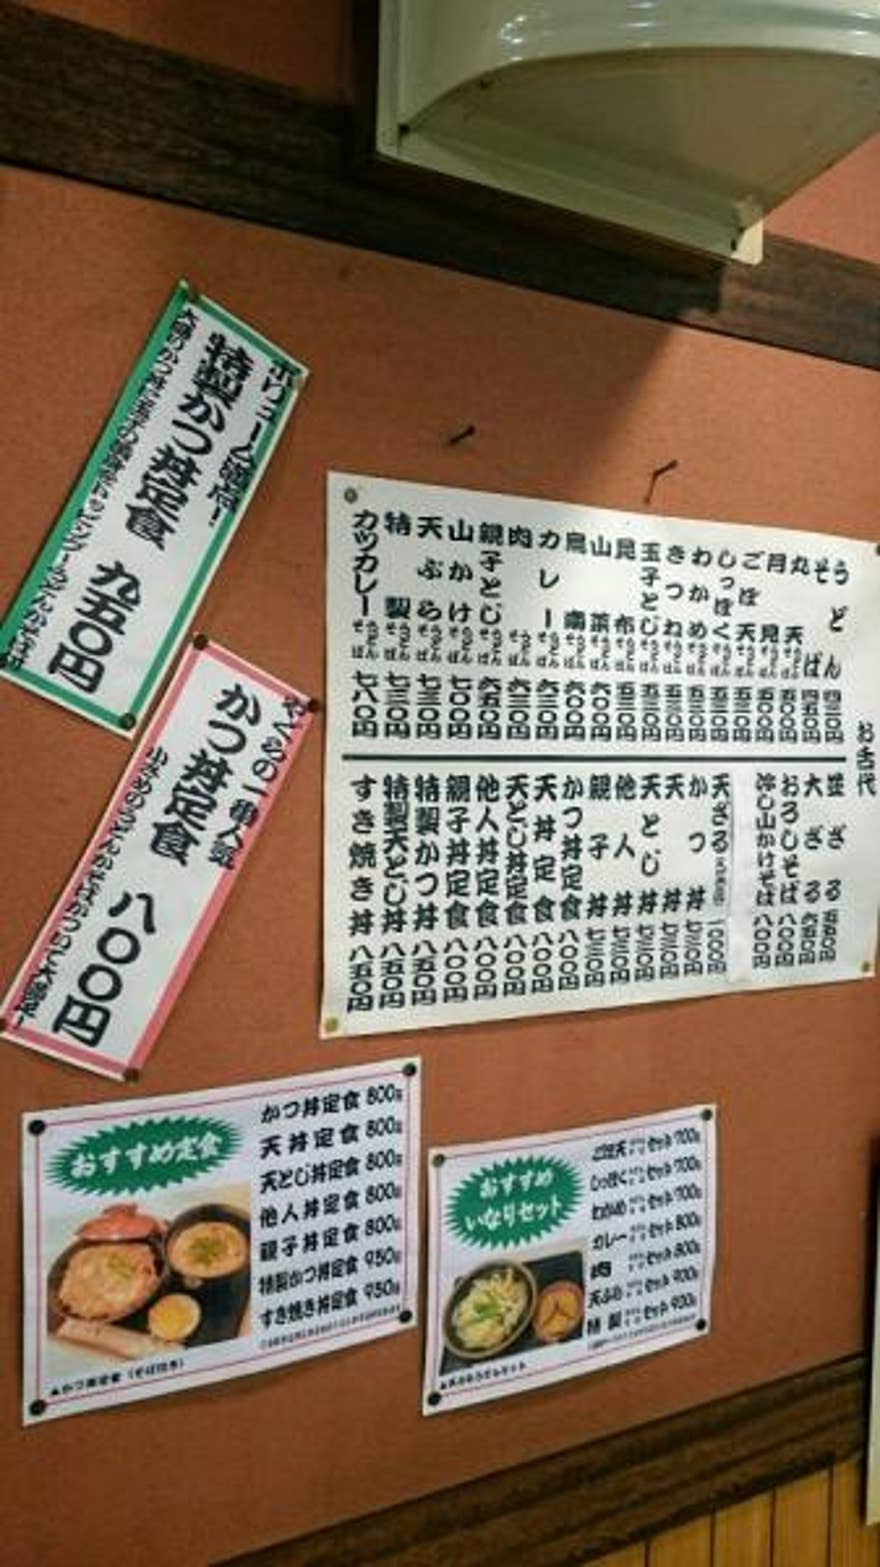 ボリューム満点!
特製かつ丼定食 九五〇円
やぐらの一番人気
かつ丼定食 八〇〇円
小さめのうどんかそばがついて大満足!
お古代
うどん
そば 四三〇円
丸天 うどん そば 四五〇円
月見 うどん そば 五〇〇円
ごぼ天 うどん そば 五三〇円
しっぽく うどん そば 五三〇円
わかめ うどん そば 五三〇円
きつね うどん そば 五三〇円
玉子とじ うどん そば 五三〇円
昆布 うどん そば 五三〇円
山菜 うどん そば 六〇〇円
鳥南 うどん そば 六〇〇円
カレー うどん そば 六三〇円
肉 うどん そば 六三〇円
親子とじ うどん そば 六五〇円
山かけ うどん そば 七〇〇円
天ぷら うどん そば 七三〇円
特製 うどん そば 七三〇円
カツカレー うどん そば 七八〇円
並ざる 五五〇円
大ざる 六五〇円
おろしそば 八〇〇円
冷し山かけそば 八〇〇円
天ざる 一〇〇〇円
かつ丼 七三〇円
天丼 七三〇円
天とじ丼 七三〇円
他人丼 七三〇円
親子丼 七三〇円
かつ丼定食 八〇〇円
天丼定食 八〇〇円
天とじ丼定食 八〇〇円
他人丼定食 八〇〇円
親子丼定食 八〇〇円
特製かつ丼 八五〇円
特製天とじ丼 八五〇円
すき焼き丼 八五〇円
おすすめ定食
かつ丼定食 800円
天丼定食 800円
天とじ丼定食 800円
他人丼定食 800円
親子丼定食 800円
特製かつ丼定食 950円
すき焼き丼定食 950円
▲かつ丼定食(そば付き)
おすすめ
いなりセット
ごぼ天 うどん そば セット 700円
しっぽく うどん そば セット 700円
わかめ うどん そば セット 700円
カレー うどん そば セット 800円
肉 うどん そば セット 800円
天ぷら うどん そば セット 900円
特製 うどん そば セット 900円